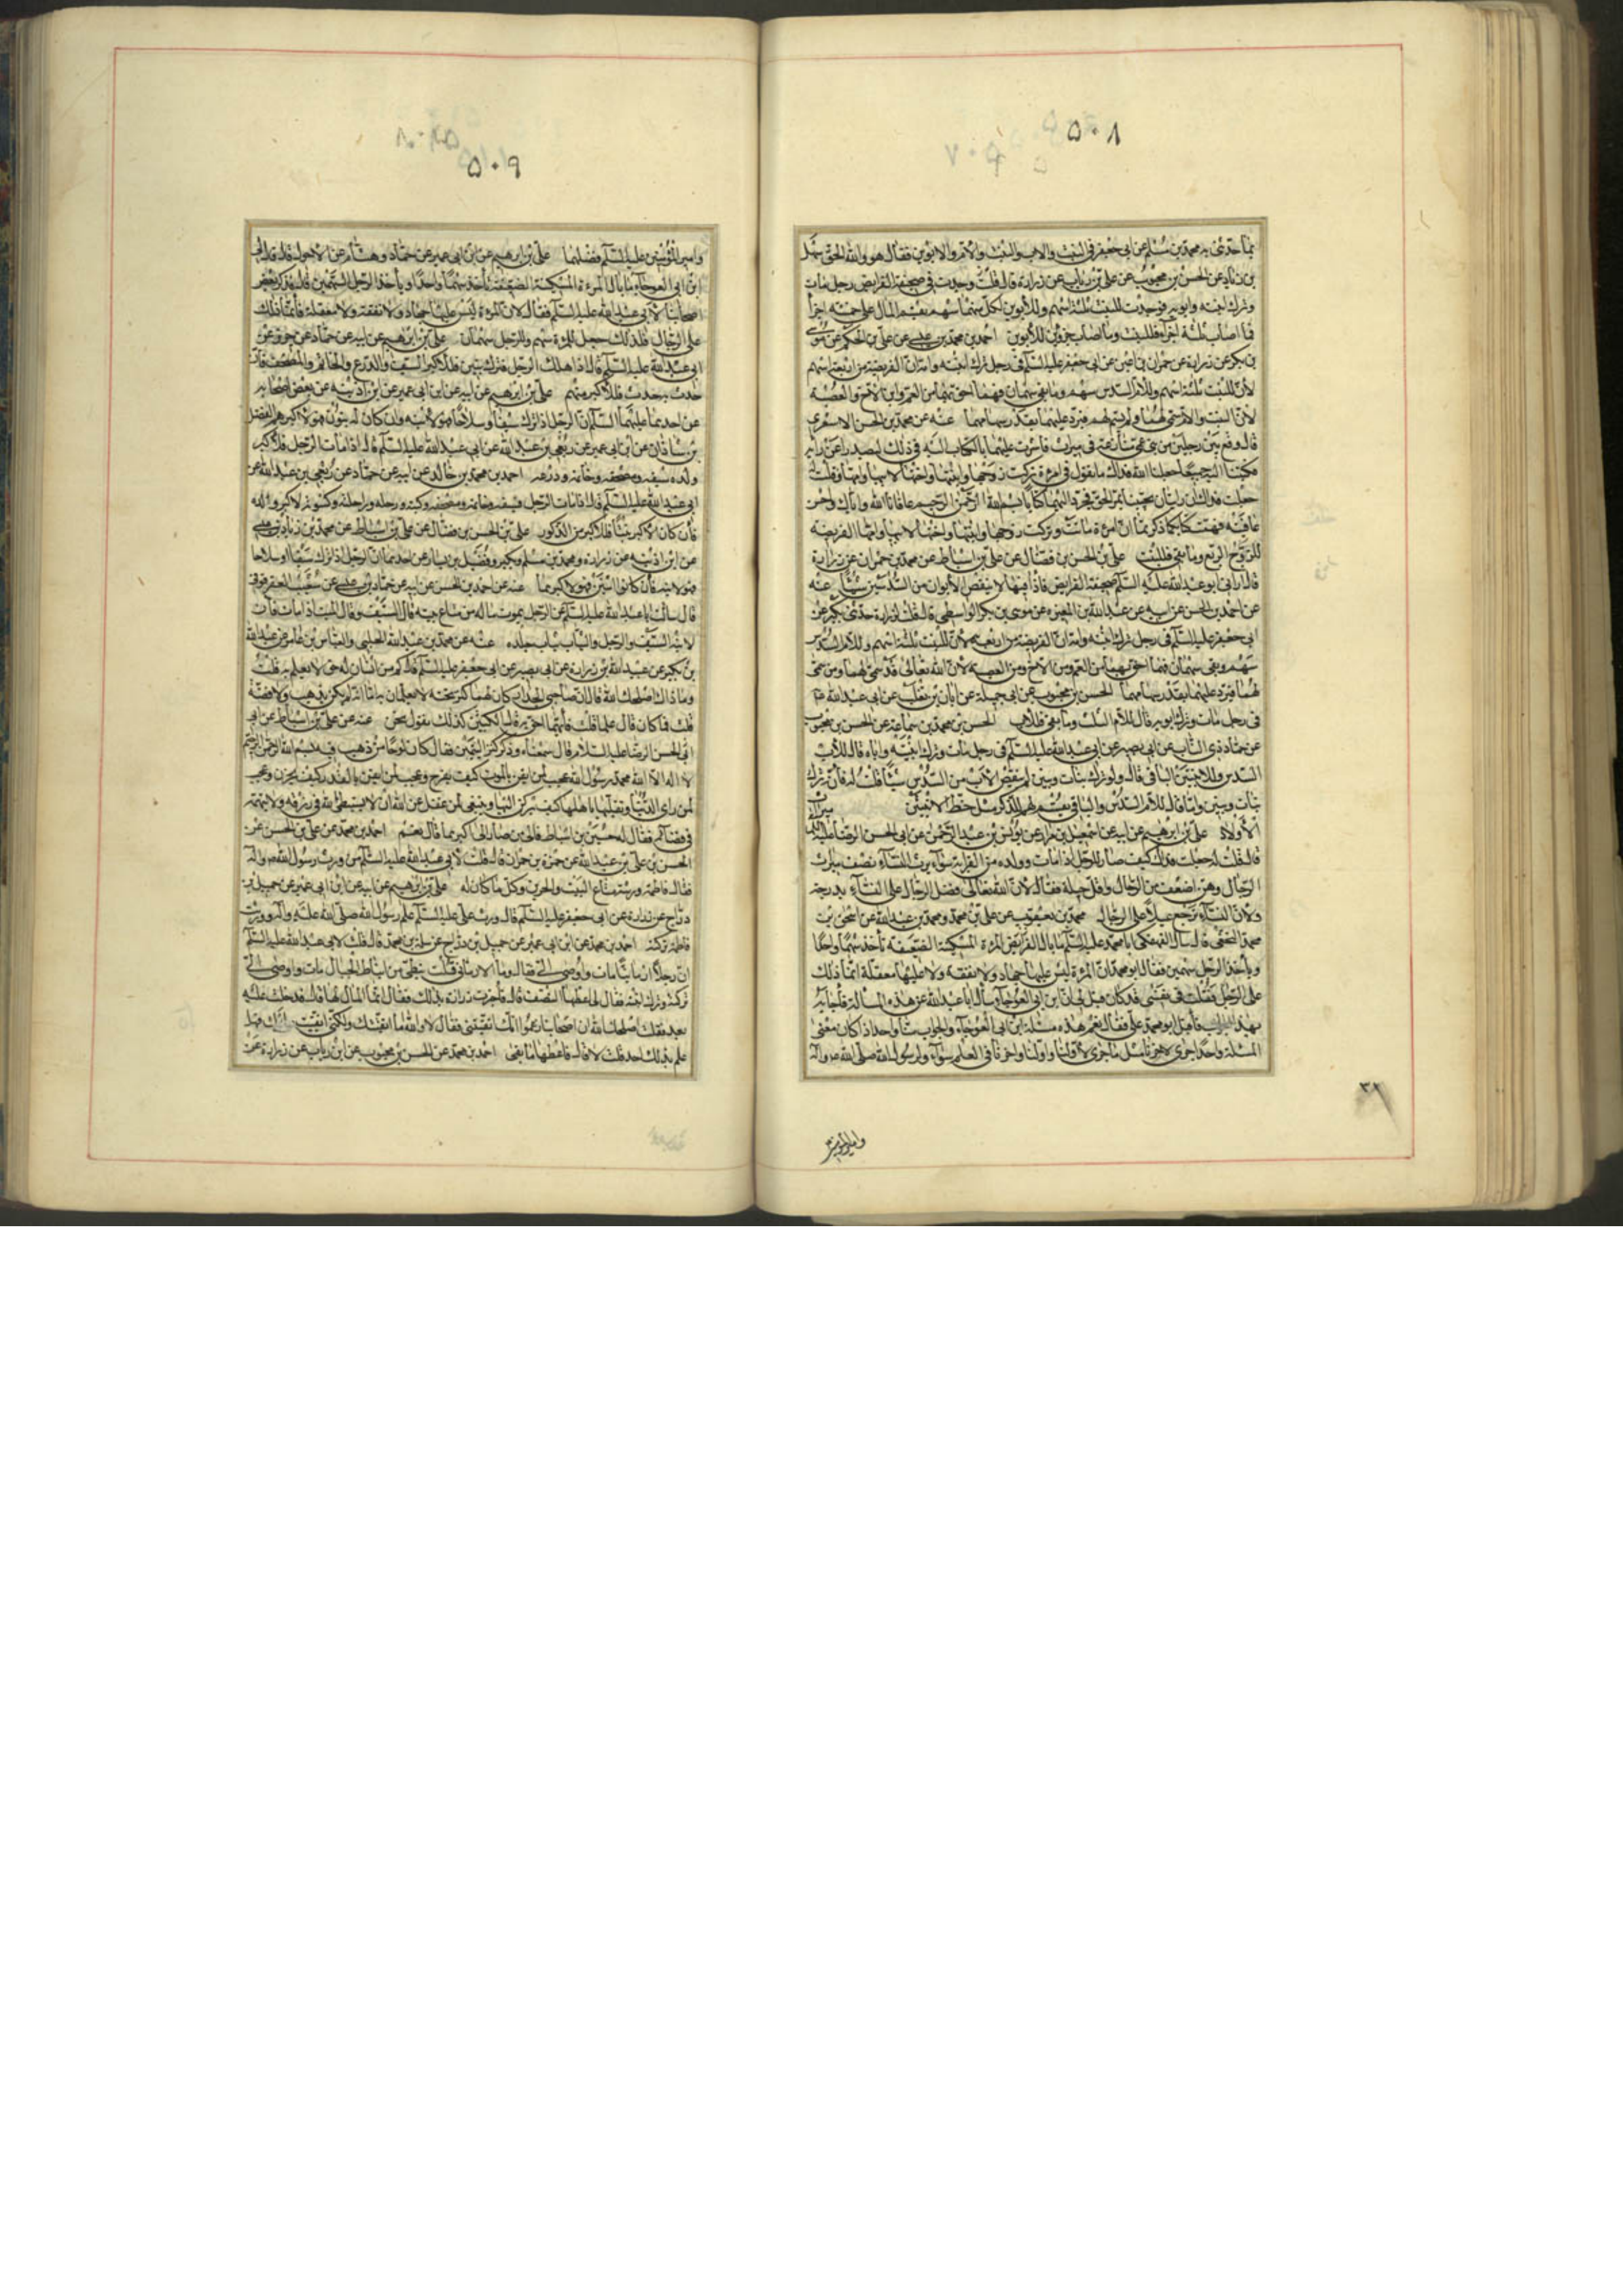 ٥٠٨
بما حدثنى به محمد بن مسلم عن ابى جعفر فى البنت والاب والبنت والام والابوين فقال هو والله الحق سهل
بن زياد عن الحسن بن محبوب عن على بن رئاب عن زرارة قال قلت وجدت فى صحيفة الفرايض رجل مات
وترك ابنته وابويه فوجدت للبنت ثلثة اسهم وللابوين لكل منهما سهم يقسم المال على خمسة اجزأ
فما اصاب ثلثة اجزأ فللبنت وما اصاب جزوين للابوين احمد بن محمد بن عيسى عن على بن الحكم عن موسى
بن بكر عن زرارة عن حمران بن اعين عن ابى جعفر عليه السلم فى رجل ترك ابنته وامه ان الفريضة من اربعة اسهم
لان للبنت ثلثة اسهم وللام السدس سهم وما بقى سهمان فهما احق بهما من العم وابن الاخ والعصبة
لان البنت والام سمى لهما ولم يسم لهم فيرد عليهما بقدر سهامهما عنه عن محمد بن الحسن الاشعرى
قال وقع بين رجلين من بنى عمى منازعة فى ميراث فاشرت عليهما بالكتاب اليه فى ذلك ليصدرا عن رايه
فكتبنا اليه جميعا جعلنا الله فداك ما تقول فى امرءة تركت زوجها وابنتها واختها لابيها وامها وقلت
جعلت فداك ان رايت ان تجيبنا بمر الحق فخرج اليهما كتابا بسم الله الرحمن الرحيم عافانا الله واياك واحسن
عافيته فهمت كتابكما ذكرتما ان امرءة ماتت وتركت زوجها وابنتها واختها لابيها وامها الفريضة
للزوج الربع وما بقى فللبنت على بن الحسن بن فضال عن على بن اسباط عن محمد بن حمران عن زرارة
قال ارانى ابو عبد الله عليه السلم صحيفة الفرايض فاذا فيها لا ينقص الابوان من السدسين شيئا عنه
عن احمد بن الحسن عن ابيه عن عبد الله بن المغيرة عن موسى بن بكر الواسطى قال قلت لزرارة حدثنى بكير عن
ابى جعفر عليه السلم فى رجل ترك ابنته وامه ان الفريضة من اربعة لان للبنت ثلثة اسهم وللام السدس
سهم وبقى سهمان فهما احق بهما من العم ومن الاخ ومن العصبة لان الله تعالى قد سمى لهما ومن سمى
لهما فيرد عليهما بقدر سهامهما الحسن بن محبوب عن ابى جميلة عن ابان بن تغلب عن ابى عبد الله
فى رجل مات وترك ابويه قال للام الثلث وما بقى فللاب الحسن بن محمد بن سماعة عن الحسن بن محبوب
عن حماد ذى الناب عن ابى بصير عن ابى عبد الله عليه السلم فى رجل مات وترك ابنتيه واباه قال للاب
السدس وللابنتين الباقى قال ولو ترك بنات وبنين لم ينقص الاب من السدس شيئا قلت له فانه ترك
بنات وبنين واما قال للام السدس والباقى يقسم لهم للذكر مثل حظ الانثيين ميراث
الاولاد على بن ابرهيم عن ابيه عن اسمعيل بن مرار عن يونس بن عبد الرحمن عن ابى الحسن الرضا عليه السلم
قال قلت له جعلت فداك كيف صار الرجل اذا مات وولده من القرابة سواء يرث النساء نصف ميراث
الرجال وهن اضعف من الرجال واقل حيلة فقال لان الله تعالى فضل الرجال على النساء بدرجة
ولان النساء ترجع عيالا على الرجال محمد بن يعقوب عن على بن محمد ومحمد بن عبد الله عن اسحق بن
محمد النخعى قال سال الفهفكى ابا محمد عليه السلم ما بال المرءة المسكينة الضعيفة تأخذ سهما واحدا
ويأخذ الرجل سهمين فقال ابو محمد ان المرءة ليس عليها جهاد ولا نفقة ولا عليها معقلة انما ذلك
على الرجل فقلت فى نفسى قد كان قيل لى ان ابن ابى العوجاء سال ابا عبد الله عن هذه المسألة فاجابه
بهذا الجواب فاقبل ابو محمد على فقال نعم هذه مسئلة ابن ابى العوجاء والجواب منا واحد اذا كان معنى
المسئلة واحدا جرى لاخرنا مثل ما جرى لاولنا واولنا واخرنا فى العلم سواء ولرسول الله صلى الله عليه واله
وامير المؤمنين
٥٠٩
وامير المؤمنين عليه السلم فضلهما على بن ابرهيم عن ابن ابى عمير عن حماد وهشام عن الاحول قال قال لى
ابن ابى العوجاء ما بال المرءة المسكينة الضعيفة تأخذ سهما واحدا ويأخذ الرجل سهمين قال فذكر بعض
اصحابنا لابى عبد الله عليه السلم فقال لان المرءة ليس عليها جهاد ولا نفقة ولا معقلة فانما ذلك
على الرجال فلذلك جعل للمرءة سهم وللرجل سهمان على بن ابرهيم عن ابيه عن حماد عن حريز عن
ابى عبد الله عليه السلم قال اذا هلك الرجل فترك بنين فللاكبر السيف والدرع والخاتم والمصحف فان
حدث به حدث فللاكبر منهم على بن ابرهيم عن ابيه عن ابن ابى عمير عن ابن اذينة عن بعض اصحابه
عن احدهما عليهما السلم ان الرجل اذا ترك سيفا وسلاحا فهو لابنه وان كان له بنون فهو لاكبرهم الفضل
بن شاذان عن ابن ابى عمير عن ربعى بن عبد الله عن ابى عبد الله عليه السلم قال اذا مات الرجل فللاكبر
ولده سيفه ومصحفه وخاتمه ودرعه احمد بن محمد بن خالد عن ابيه عن حماد عن ربعى بن عبد الله عن
ابى عبد الله عليه السلم قال اذا مات الرجل فسيفه وخاتمه ومصحفه وكتبه ورحله وراحلته وكسوته لاكبر ولده
فان كان الاكبر بنتا فللاكبر من الذكور على بن الحسن بن فضال عن على بن اسباط عن محمد بن زياد بن عيسى
عن ابن اذينة عن زرارة ومحمد بن مسلم وبكير وفضيل بن يسار عن احدهما ان الرجل اذا ترك سيفا او سلاحا
فهو لابنه فان كانوا اثنين فهو لاكبرهما عنه عن احمد بن الحسن عن ابيه عن حماد بن عيسى عن شعيب العقرقوفى
قال سألت ابا عبد الله عليه السلم عن الرجل يموت ماله من متاع بيته قال السيف وقال الميت اذا مات فان
لابنه السيف والرحل والثياب ثياب جلده عنه عن محمد بن عبيد الله الحلبى والعباس بن عامر عن عبد الله
بن بكير عن عبيد الله بن زرارة عن ابى بصير عن ابى جعفر عليه السلم قال كم من انسان له حق لا يعلم به قلت
وما ذاك اصلحك الله قال ان صاحبى الجدار كان لهما كنز تحته لا يعلمان به اما انه لم يكن بذهب ولا فضة
قلت فما كان قال علما قلت فايهما احق به قال الكبير كذلك نقول نحن عنه عن على بن اسباط عن ابى
الحسن الرضا عليه السلام قال سمعناه وذكر كنز اليتيمين فقال كان لوحا من ذهب فيه بسم الله الرحمن الرحيم
لا اله الا الله محمد رسول الله عجب لمن ايقن بالموت كيف يفرح وعجب لمن ايقن بالقدر كيف يحزن وعجب
لمن راى الدنيا وتقلبها باهلها كيف يركن اليها وينبغى لمن عقل عن الله ان لا يستبطئ الله فى رزقه ولا يتهمه
فى قضائه فقال له حسين بن اسباط فالى من صار الى اكبرهما قال نعم احمد بن محمد عن على بن الحسن عن
الحسن بن على بن عبد الله عن حمزة بن حمران قال قلت لابى عبد الله عليه السلم من ورث رسول الله
فقال فاطمة ورثته متاع البيت والخرثى وكل ما كان له على بن ابرهيم عن ابيه عن ابن ابى عمير عن جميل بن
دراج عن زرارة عن ابى جعفر عليه السلم قال ورث على عليه السلم علم رسول الله صلى الله عليه واله وورثت
فاطمة تركته احمد بن محمد عن ابن ابى عمير عن جميل بن دراج عن سلمة بن محرز قال قلت لابى عبد الله عليه السلم
ان رجلا ارمانيا مات واوصى الى فقال وما الارمانى قلت نبطى من انباط الجبال مات واوصى الى
بتركته وترك ابنته فقال لى اعطها النصف قال فاخبرت زرارة بذلك فقال اتقاك انما المال لها قال فدخلت عليه
بعد فقلت اصلحك الله ان اصحابنا زعموا انك اتقيتنى فقال لا والله ما اتقيتك ولكنى اتقيت عليك فهل
علم بذلك احد قلت لا قال فاعطها ما بقى احمد بن محمد عن الحسن بن محبوب عن ابن رئاب عن زرارة عن